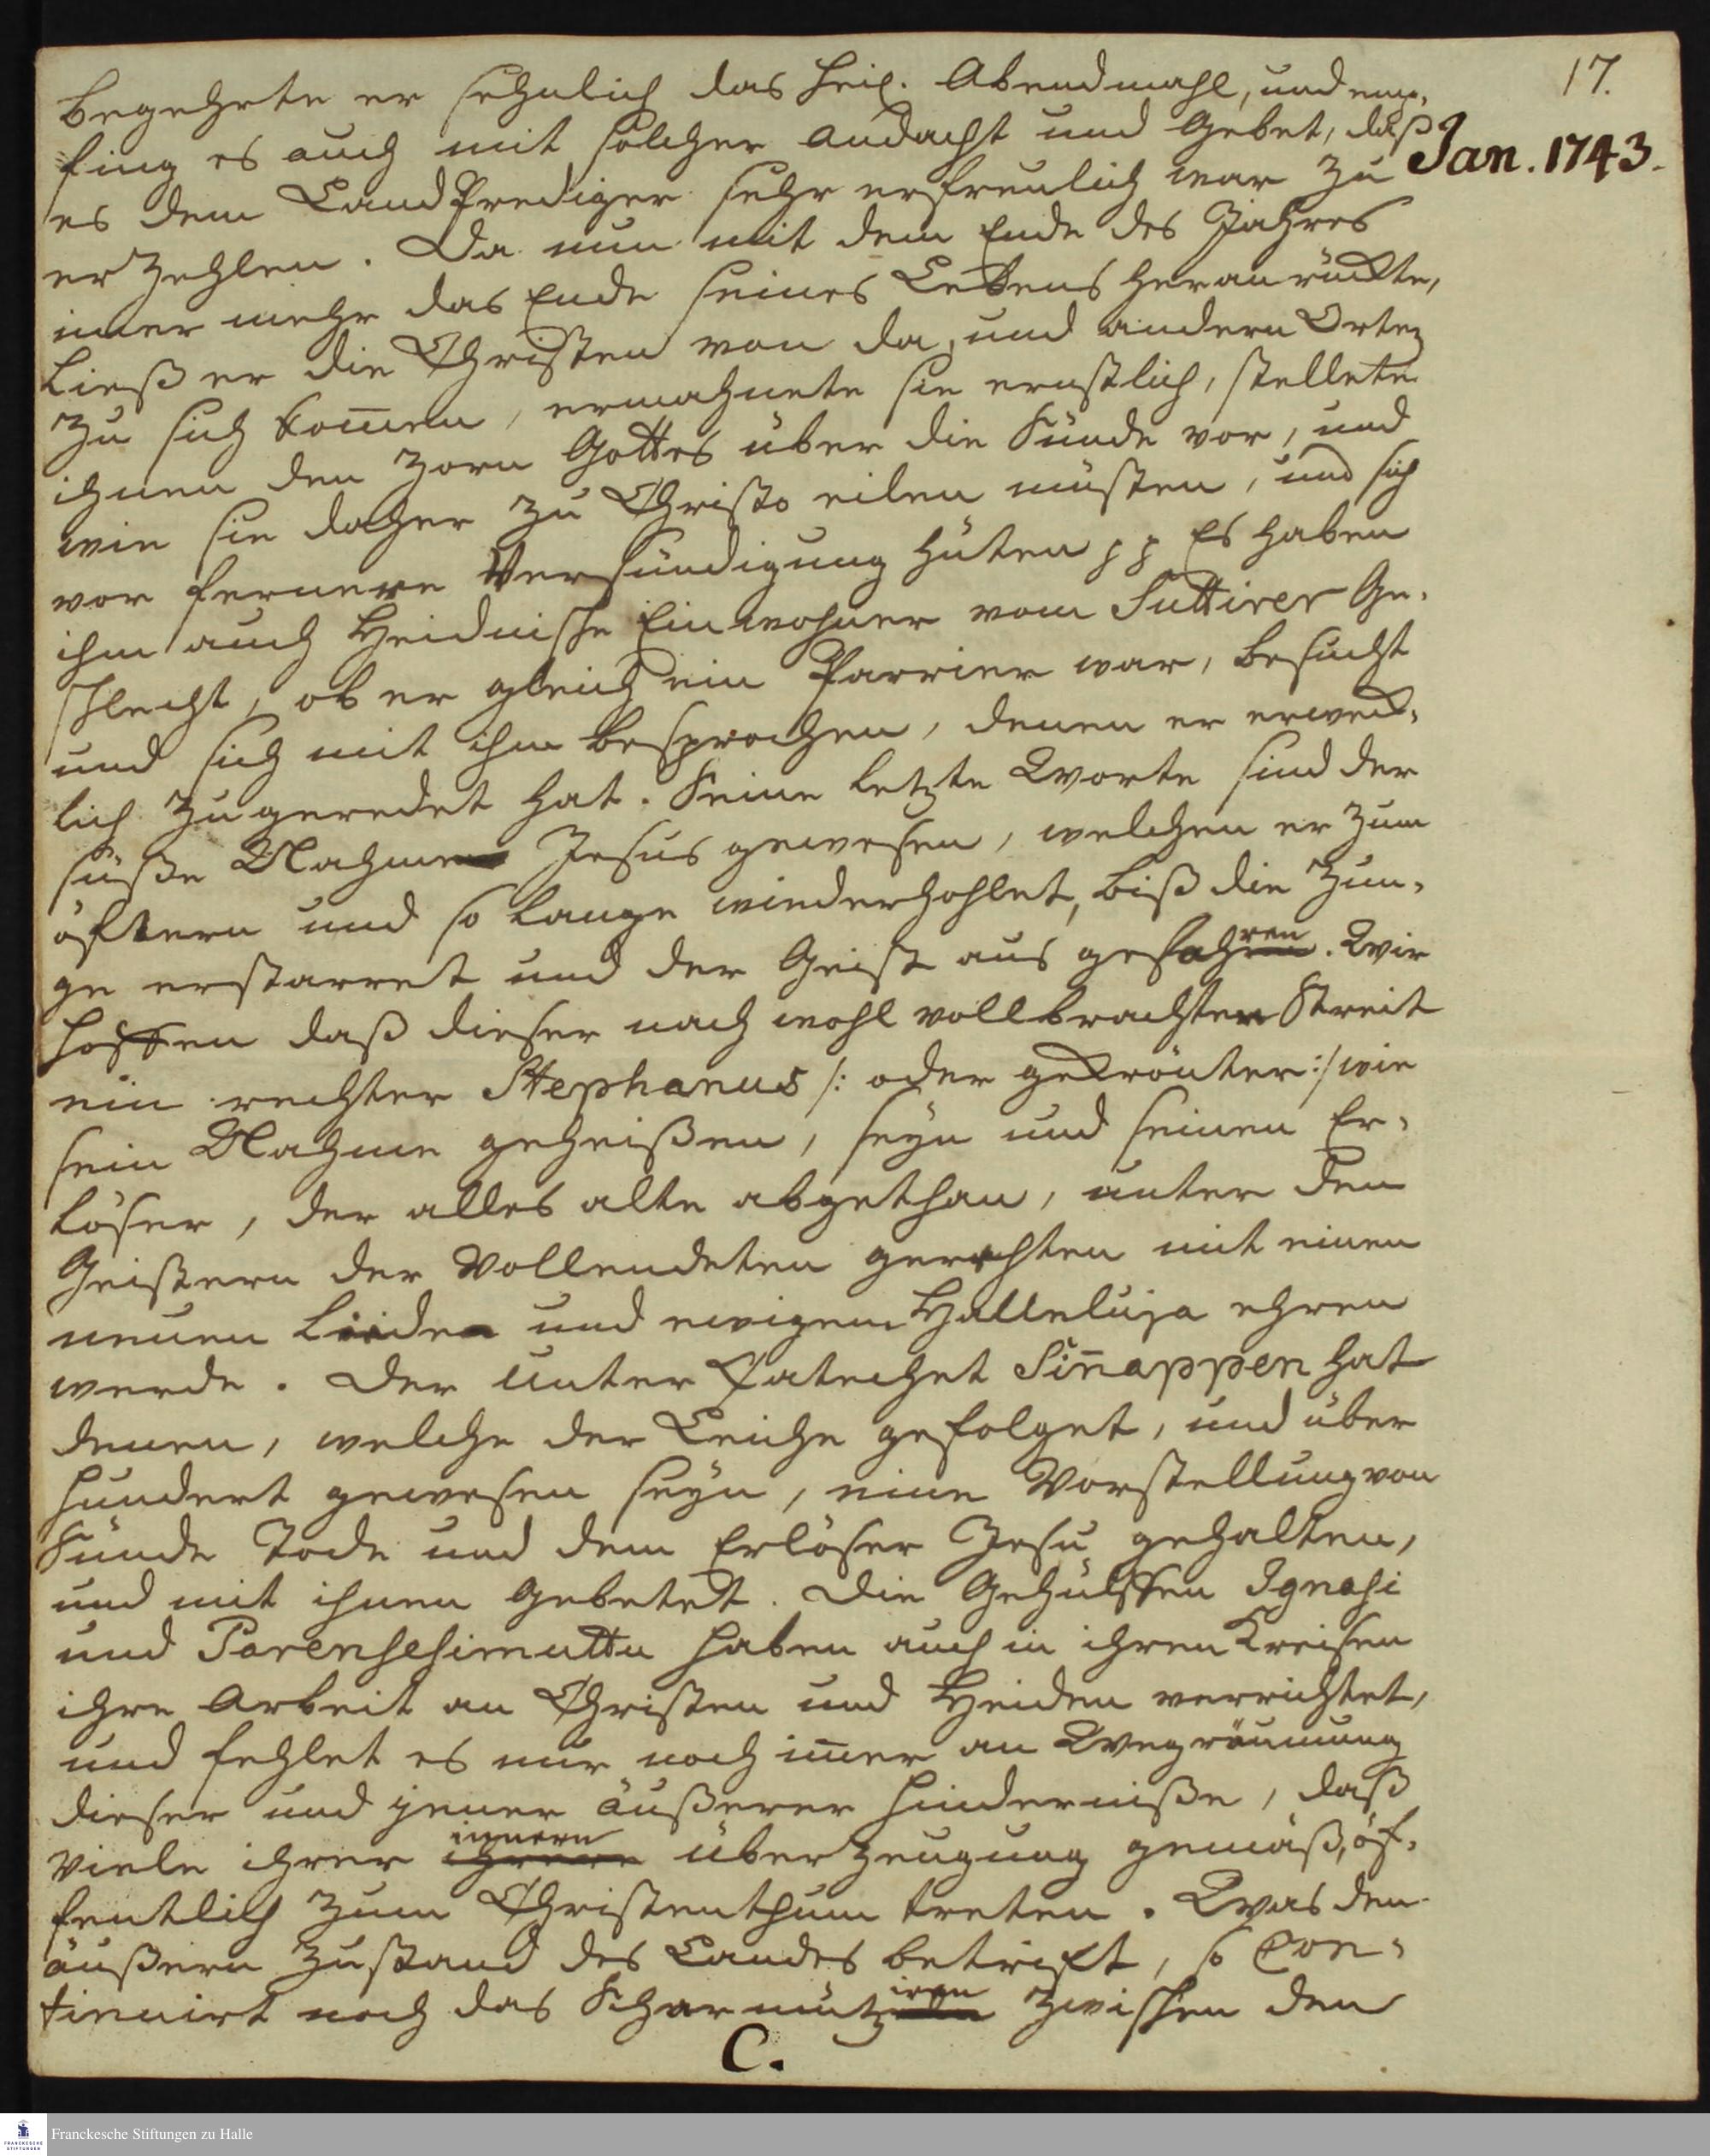 17.
Jan. 1743.
begehrte er sehnlich das heil. Abendmahl, und emp¬
fing es auch mit solcher Andacht und Gebet, daß
es dem LandPrediger sehr erfreulich war zu
erzehlen. Da nun mit dem Ende des Jahres
im̅er mehr das Ende seines Lebens heranrückte,
ließ er die Christen von da, und andern Orten
zu sich kom̅en, ermahnete sie ernstlich, stellete
ihnen den Zorn Gottes über die Sünde vor, und
wie sie daher zu Christo eilen müsten, und sich
vor fernere Versündigung hüten pp Es haben
ihn auch Heidnische Einwohner vom Suttirer Ge¬
schlecht, ob er gleich ein Parrier war, besucht
und sich mit ihm besprochen, denen er erweck¬
lich zugeredet hat. Seine letzte Worte sind der
süße Nahme Jesus gewesen, welchen er zum
öftern und so lange wiederhohlet, biß die Zun¬
ge erstarret und der Geist aus gefahren. Wir
hoffen daß dieser nach wohl vollbrachten Streit
ein rechter Stephanus /: oder gekrönter :/ wie
sein Nahme geheißen, seyn und seinen Er¬
löser, der alles alte abgethan, unter den
Geistern der Vollendeten gerechten mit einen
neuen Liede und ewigem Halleluja ehren
werde. Der Unter Catechet Sin̅appen hat
denen, welche der Leiche gefolget, und über
hundert gewesen seyn, eine Vorstellung von
Sünde Tode und dem Erlöser Jesu gehalten,
und mit ihnen gebetet. Die Gehülffen Ignasi
und Parenschsimuttu haben auch in ihren Kreisen
ihre Arbeit an Christen und Heiden verrichtet,
und fehlet es nur noch im̅er an Wegräumung
dieser und jener äußerer Hinderniße, daß
viele ihrer innern überzeugung gemäß, öf¬
fentlich zum Christenthum treten. Was den
äußern Zustand des Landes betrift, so con¬
tinuirt noch das Scharmütziren zwischen den
C.
Franckesche Stiftungen zu Halle